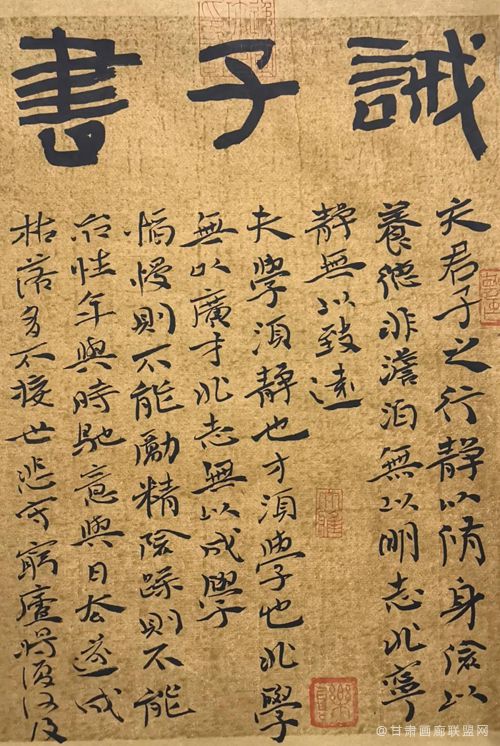 誡子書
夫君子之行静以脩身儉以
養德非澹泊無以明志非寧
静無以致遠
夫學須静也才須學也非學
無以廣才非志無以成學
慆慢則不能勵精險躁則不能
冶性年與時馳意與日去遂成
枯落多不接世悲守窮廬將復何及
@甘肃画廊联盟网